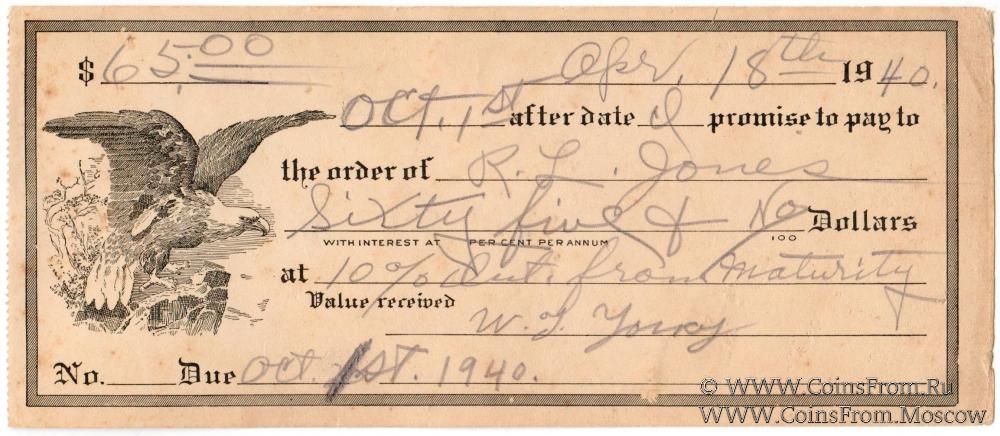 $ 65.00 Apr. 18th 1940.
Oct. 1st after date I promise to pay to
the order of R. L. Jones
Sixty five & No/100 Dollars
WITH INTEREST AT PER CENT PER ANNUM
at 10% Int. from maturity
Value received
W. T.
No. Due Oct. 1st. 1940.
© WWW.CoinsFrom.Ru
WWW.CoinsFrom.Moscow